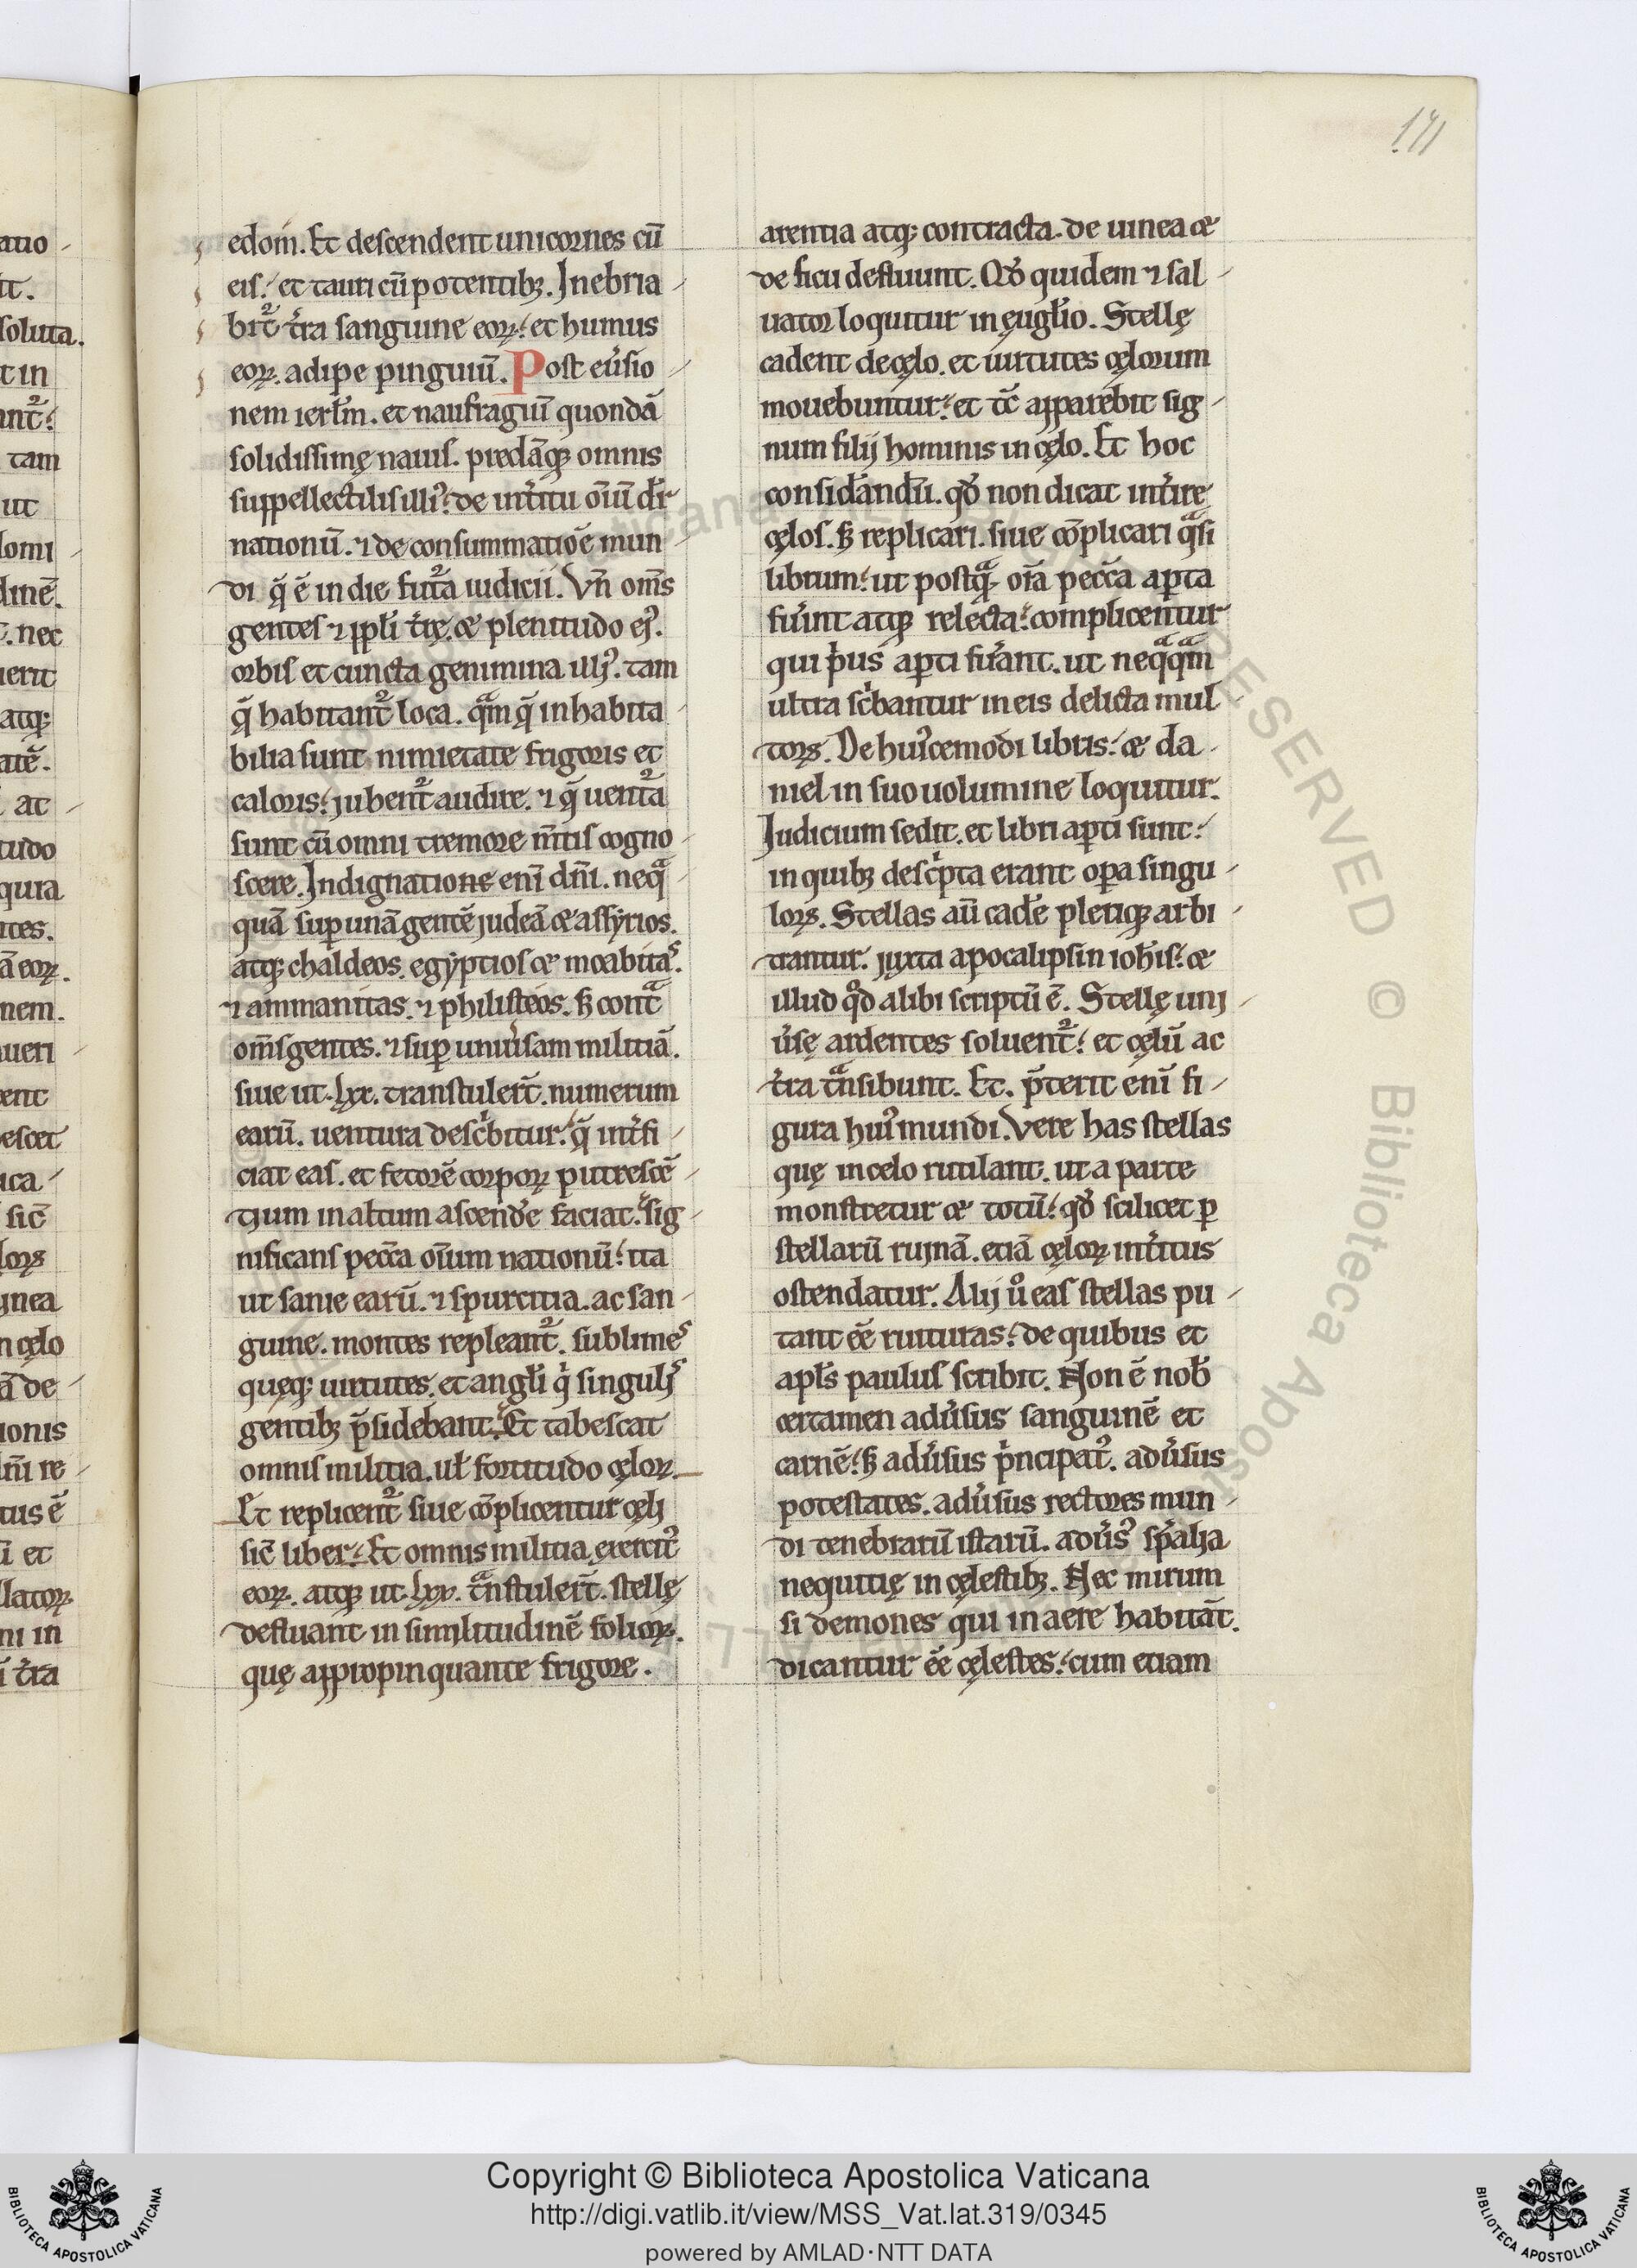 171
edom. Et descendent unicornes cū
eis. et tauri cū potentibꝫ. Inebria
bit᷑ t̄ra sanguine eoꝝ. et humus
eoꝝ. adipe pinguiū. Post eūsio
nem ierłm. et naufragiū quondā
solidissimę nauis. predāqꝫ omnis
suppellectilis illiꝰ. de int̄itu oīū dr̄
nationū. ⁊ de consummatiōe mun
di q̄ ē in die fut᷑a iudicii. Vn̄ om̄s
gentes ⁊ ppłi t̄rę. & plenitudo eiꝰ.
orbis et cuncta genimina illiꝰ. tam
q̄ habitant᷑ loca. qᵃm q̄ inhabita
bilia sunt nimietate frigoris et
caloris. jubent᷑ audire. ⁊ q̄ uent᷑a
sunt cū omni tremore m̄tis cogno
scere. Indignatione enī dn̄i. neqᵃ
quā suꝑ unā gentē judeā & assyrios.
atqꝫ chaldeos. egyptios & moabitaˢ.
⁊ ammanitas. ⁊ philisteos. sꝫ contᵃ
om̄s gentes. ⁊ suꝑ uniūsam militiā.
siue ut. lxx. transtuler̄t. numerum
earū. uentura desc̍bitur. q̄ int̄fi
ciat eas. et fetorē corpoꝝ putrescē
tium in altum ascend̄e faciat. sig
nificans pecc̄a oīum nationū. ita
ut sanie earū. ⁊ spurcitia. ac san
guine. montes repleant᷑. sublimeˢ
quęqꝫ uirtutes. et angłi q̍ singulisˢ
gentibꝫ p̄sidebant. Et tabescat
omnis militia. uł fortitudo cęloꝝ.
Et replicent᷑ siue cōplicentur cęli
sic̄ liber. Et omnis militia exercitꝰ
eoꝝ. atqꝫ ut. lxx. tᵃnstuler̄t. stellę
defluant in similitudinē folioꝝ.
quę appropinquante frigore.
arentia atqꝫ contracta. de uinea &
de ficu defluunt. Qd̄ quidem ⁊ sal
uator loquitur in eugłio. Stellę
cadent de cęlo. et uirtutes cęlorum
mouebuntur. et tc̄ apparebit sig
num filij hominis in cęlo. Et hoc
consid̄andū. qd̄ non dicat int̄ire
cęlos. sꝫ replicari. siue cōplicari qᵃsi
librum. ut postqᵃ̄ oīa pecc̄a aꝑta
fūint atqꝫ relecta. complicentur
qui p̍us aꝑti fūant. ut neqᵃqᵃm
ultra sc̍bantur in eis delicta mul
toꝝ. De huiꝰcemodi libris. & da
niel in suo uolumine loquitur.
Judicium sedit. et libri aꝑti sunt.
in quibꝫ desc̍pta erant oꝑa singu
loꝝ. Stellas aū cad̄e pleriqꝫ arbi
trantur. juxta apocalipsin ioh̄is. &
illud qᵒd alibi scriptū ē. Stellę uni
ūsę ardentes soluent᷑. et cęlū ac
t̄ra tᵃnsibunt. Et. p̄terit enī fi
gura huiꝰ mundi. Vere has stellas
quę in celo rutilant. ut a parte
monstretur & totū. qd̄ scilicet ꝑ
stellarū ruinā. etiā cęloꝝ int̄itus
ostendatur. Alij uͦ eas stellas pu
tant ēē ruituras. de quibus et
apłs paulus scribit. Non ē nob̄
certamen adūsus sanguinē et
carnē. sꝫ adūsus p̍ncipatꝰ. adūsus
potestates. adūsus rectores mun
di tenebrarū istarū. adūsꝰ sp̄alia
nequitię in cęlestibꝫ. Nec mirum
si demones qui in aere habitāt.
dicantur ēē cęlestes. cum etiam
Copyright © Biblioteca Apostolica Vaticana
http://digi.vatlib.it/view/MSS_Vat.lat.319/0345
powered by AMLAD·NTT DATA